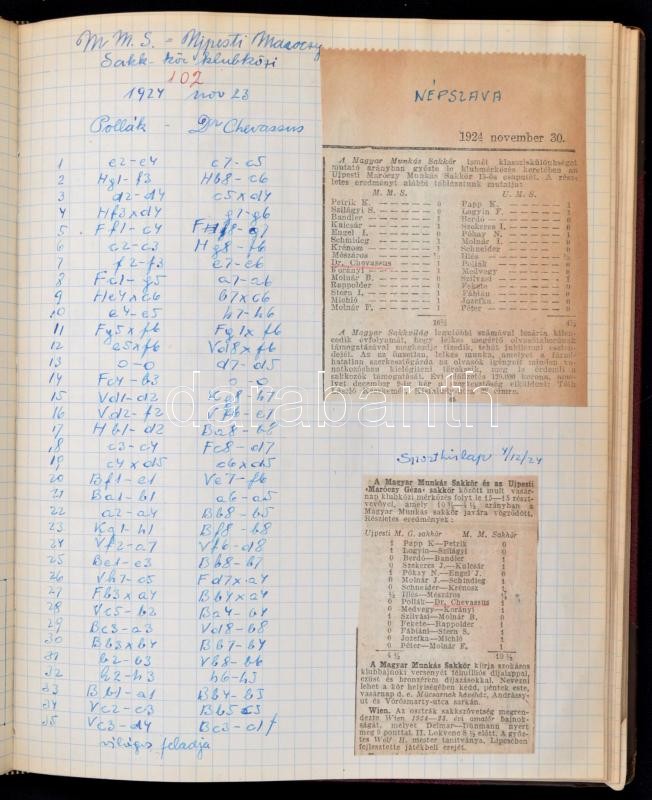 M M. S. = Ujpesti Maroczy
Sakk kör klubközi
102
1924 nov 23
Pollák - Dr Chevassus
1 e2-e4 c7-c5
2 Hg1-f3 Hb8-c6
3 d2-d4 c5xd4
4 Hf3xd4 g7-g6
5 Ff1-c4 Ff8-g7
6 c2-c3 Hg8-f6
7 f2-f3 e7-e6
8 Fc1-g5 a7-a6
9 Hc4xc6 b7xc6
10 e4-e5 h7-h6
11 Fg5xf6 Fg7xf6
12 e5xf6 Vd8xf6
13 0-0 d7-d5
14 Fc4-b3 0-0
15 Vd1-d2 Kg8-h7
16 Vd2-f2
17 Hb1-d2
18 c3-c4 Fc8-d7
19 c4xd5 c6xd5
20 Bf1-e1 Ve7-f6
21 Ba1-b1 a6-a5
22 a2-a4 Bb8-b5
23 Kg1-h1 Bf8-b8
24 Vf2-a7 Vf6-d8
25 Be1-e3 Bb8-b7
26 Va7-c5 Fd7xa4
27 Fb3xa4 Bb4xa4
28 Vc5-b2 Ba4-b4
29 Bc3-a3 Vd8-b8
30 Bb3xb4 Bb7-b4
31 b2-b3 Vb8-b6
32 h2-h3 h6-h5
33 Bb1-a1 Bb4-b5
34 Vc2-c3 Bb5-c5
35 Vc3-d4 Bc3-c1†
világos feladja
NÉPSZAVA
1924 november 30.
A Magyar Munkás Sakkör ismét klasszkülönbséget
mutató arányban győzte le klubmérkőzés keretében az
Ujpesti Maróczy Munkás Sakkör 15-ös csapatát. A rész-
letes eredményt alábbi táblázatunk mutatja:
M. M. S. U. M. S.
Petrik K. 0 Papp K. 1
Szilágyi S. 0 Logyin F. 1
Bandler 1 Berdó 0
Kulcsár 1 Szekeres I. 0
Engel I. 0 Pókay N. 1
Schmideg 1 Molnár I. 0
Krénosz 1 Schneider 0
Mészáros ½ Illés ½
Dr. Chevassus 1 Pollák 0
Korányi 1 Medvegy 0
Molnár B. 0 Szilvási 1
Rappolder 1 Fekete 0
Stern I. 1 Fábián 0
Michló 1 Jozefka 0
Molnár F. 1 Péter 0
10½ 4½
A Magyar Sakkvilág legutóbbi számával lezárta kilen-
cedik évfolyamát, hogy lelkes megértő olvasótáborának
támogatásával megkezdje tizedik, tehát jubileumi eszten-
dejét. Az az önzetlen, lelkes munka, amelyet a fárad-
hatatlan szerkesztőgárda az olvasók igényeit minden vo-
natkozásban kielégíteni törekszik, meg is érdemli a
sakkozók támogatását. Évi előfizetés 120.000 korona, ame-
lyet december 5-ig bár két részletben is kiküldeni: Tóth
László Kecskemét, Kisfaludy címre.
Sporthirlap 4/12/24
A Magyar Munkás Sakkör és az Ujpesti
»Maróczy Géza« sakkör között mult vasár-
nap klubközi mérkőzés folyt le 15—15 részt-
vevővel, amely 10½—4½ arányban a
Magyar Munkás sakkör javára végződött.
Részletes eredmények:
Ujpesti M. G. sakkör M. M. Sakkör
1 Papp K—Petrik 0
1 Logyin—Szilágyi 0
0 Berdó—Bandler 1
0 Szekeres J.—Kulcsár 1
1 Pókay N.—Engel J. 0
0 Molnár J.—Schindieg 1
0 Schneider—Krénosz 1
½ Illés—Mészáros ½
0 Pollák—Dr. Chevassus 1
0 Medvegy—Korányi 1
1 Szilvási—Molnár B. 0
0 Fekete—Rappolder 1
0 Fábiáni—Stern S. 1
0 Jozefka—Michló 1
0 Péter—Molnár F. 1
4½ 10½
A Magyar Munkás Sakkör kiírja szokásos
klubbajnoki versenyét félmilliós díjalappal,
ezüst és bronzérem díjazásokkal. Nevezni
lehet a kör helyiségében kedd, péntek este,
vasárnap d. e. Műcsarnok kávéház, Andrássy-
ut és Vörösmarty-utca sarkán.
Wien. Az osztrák sakkszövetség megren-
dezte Wien 1924—25. évi amatőr bajnok-
ságát, melyet Delmar—Dünmann nyert
meg 9 ponttal. II. Lokvenc 8½ előtt. A győz-
tes Wolf H. mester tanítványa. Lipcsében
fejlesztette játékbeli erejét.
darabanth